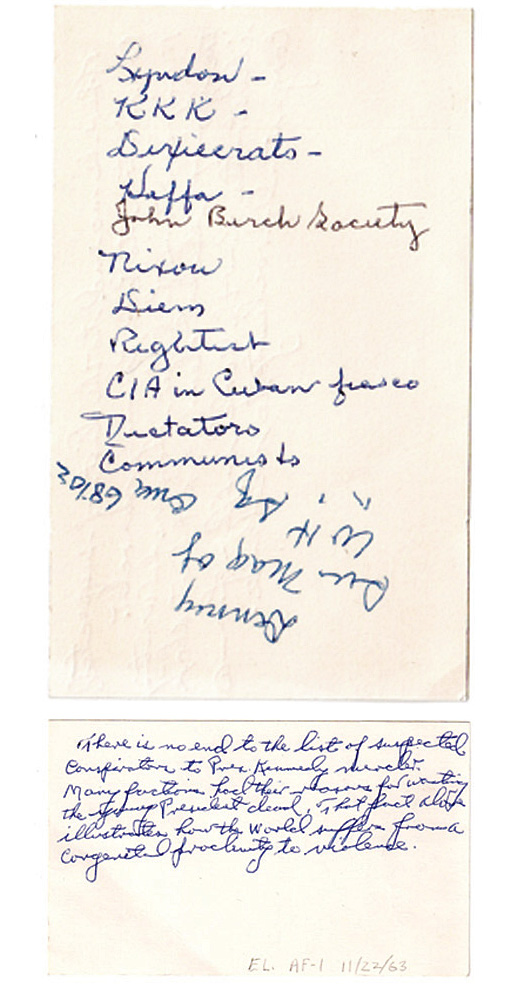 Lyndon -
KKK -
Dixiecrats -
Hoffa -
John Birch Society
Nixon
Diem
Rightist
CIA in Cuban fiasco
Dictators
Communists
There is no end to the list of suspected
conspirators to Pres. Kennedy murder.
Many factions had their reasons for wanting
the young President dead. That fact alone
illustrates how the world suffers from a
congenital proclivity to violence.
EL. AF-1 11/22/63